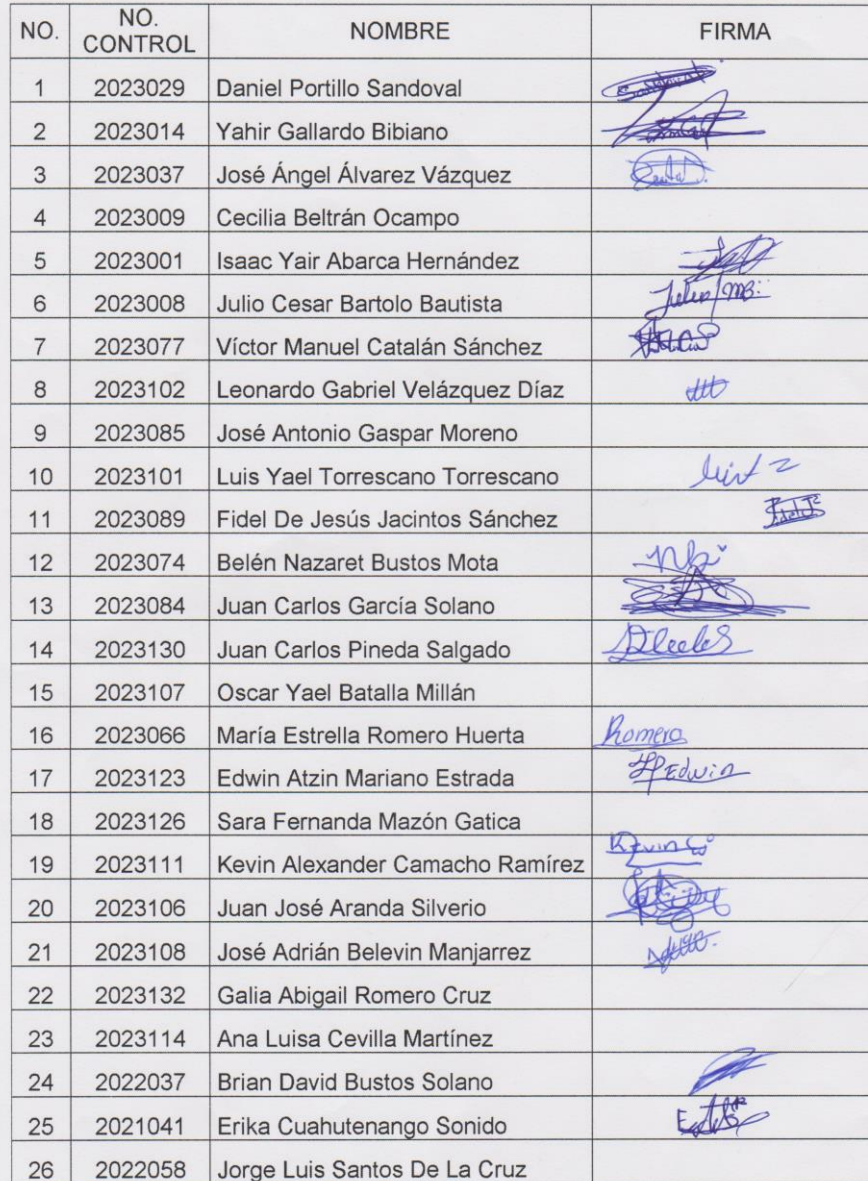 NO. NO. CONTROL NOMBRE FIRMA
1 2023029 Daniel Portillo Sandoval
2 2023014 Yahir Gallardo Bibiano
3 2023037 José Ángel Álvarez Vázquez
4 2023009 Cecilia Beltrán Ocampo
5 2023001 Isaac Yair Abarca Hernández
6 2023008 Julio Cesar Bartolo Bautista
7 2023077 Víctor Manuel Catalán Sánchez
8 2023102 Leonardo Gabriel Velázquez Díaz
9 2023085 José Antonio Gaspar Moreno
10 2023101 Luis Yael Torrescano Torrescano
11 2023089 Fidel De Jesús Jacintos Sánchez
12 2023074 Belén Nazaret Bustos Mota
13 2023084 Juan Carlos García Solano
14 2023130 Juan Carlos Pineda Salgado
15 2023107 Oscar Yael Batalla Millán
16 2023066 María Estrella Romero Huerta Romero
17 2023123 Edwin Atzin Mariano Estrada Edwin
18 2023126 Sara Fernanda Mazón Gatica
19 2023111 Kevin Alexander Camacho Ramírez Kevin
20 2023106 Juan José Aranda Silverio
21 2023108 José Adrián Belevin Manjarrez
22 2023132 Galia Abigail Romero Cruz
23 2023114 Ana Luisa Cevilla Martínez
24 2022037 Brian David Bustos Solano
25 2021041 Erika Cuahutenango Sonido
26 2022058 Jorge Luis Santos De La Cruz